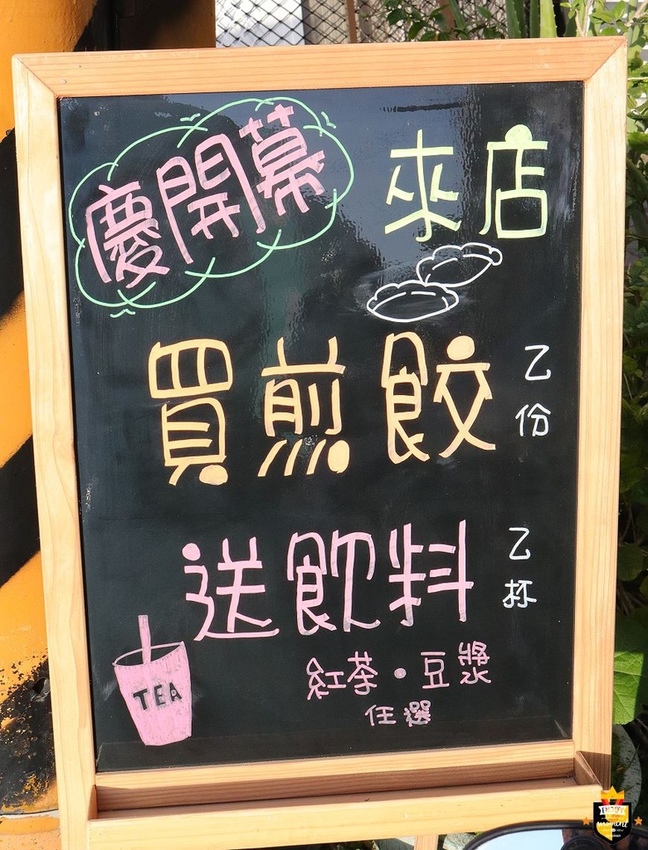 慶開幕
來店
買煎餃 乙份
送飲料 乙杯
紅茶・豆漿
任選
TEA